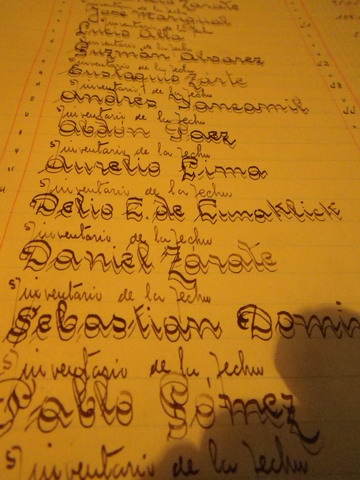 Zarate
Inventario de la fecha
José Marigual
Inventario de la fecha
Lucio Alba
Inventario de la fecha
Guzmán Alvarez
Inventario de la fecha
Eustaquio Zarte
Inventario de la fecha
Andres Yancamil
Inventario de la fecha
Abdón Paez
Inventario de la fecha
Aurelio Lima
Inventario de la fecha
Delio E. de
Inventario de la fecha
Daniel Zarate
Inventario de la fecha
Sebastian Domin
Inventario de la fecha
Pablo Gomez
Inventario de la fecha